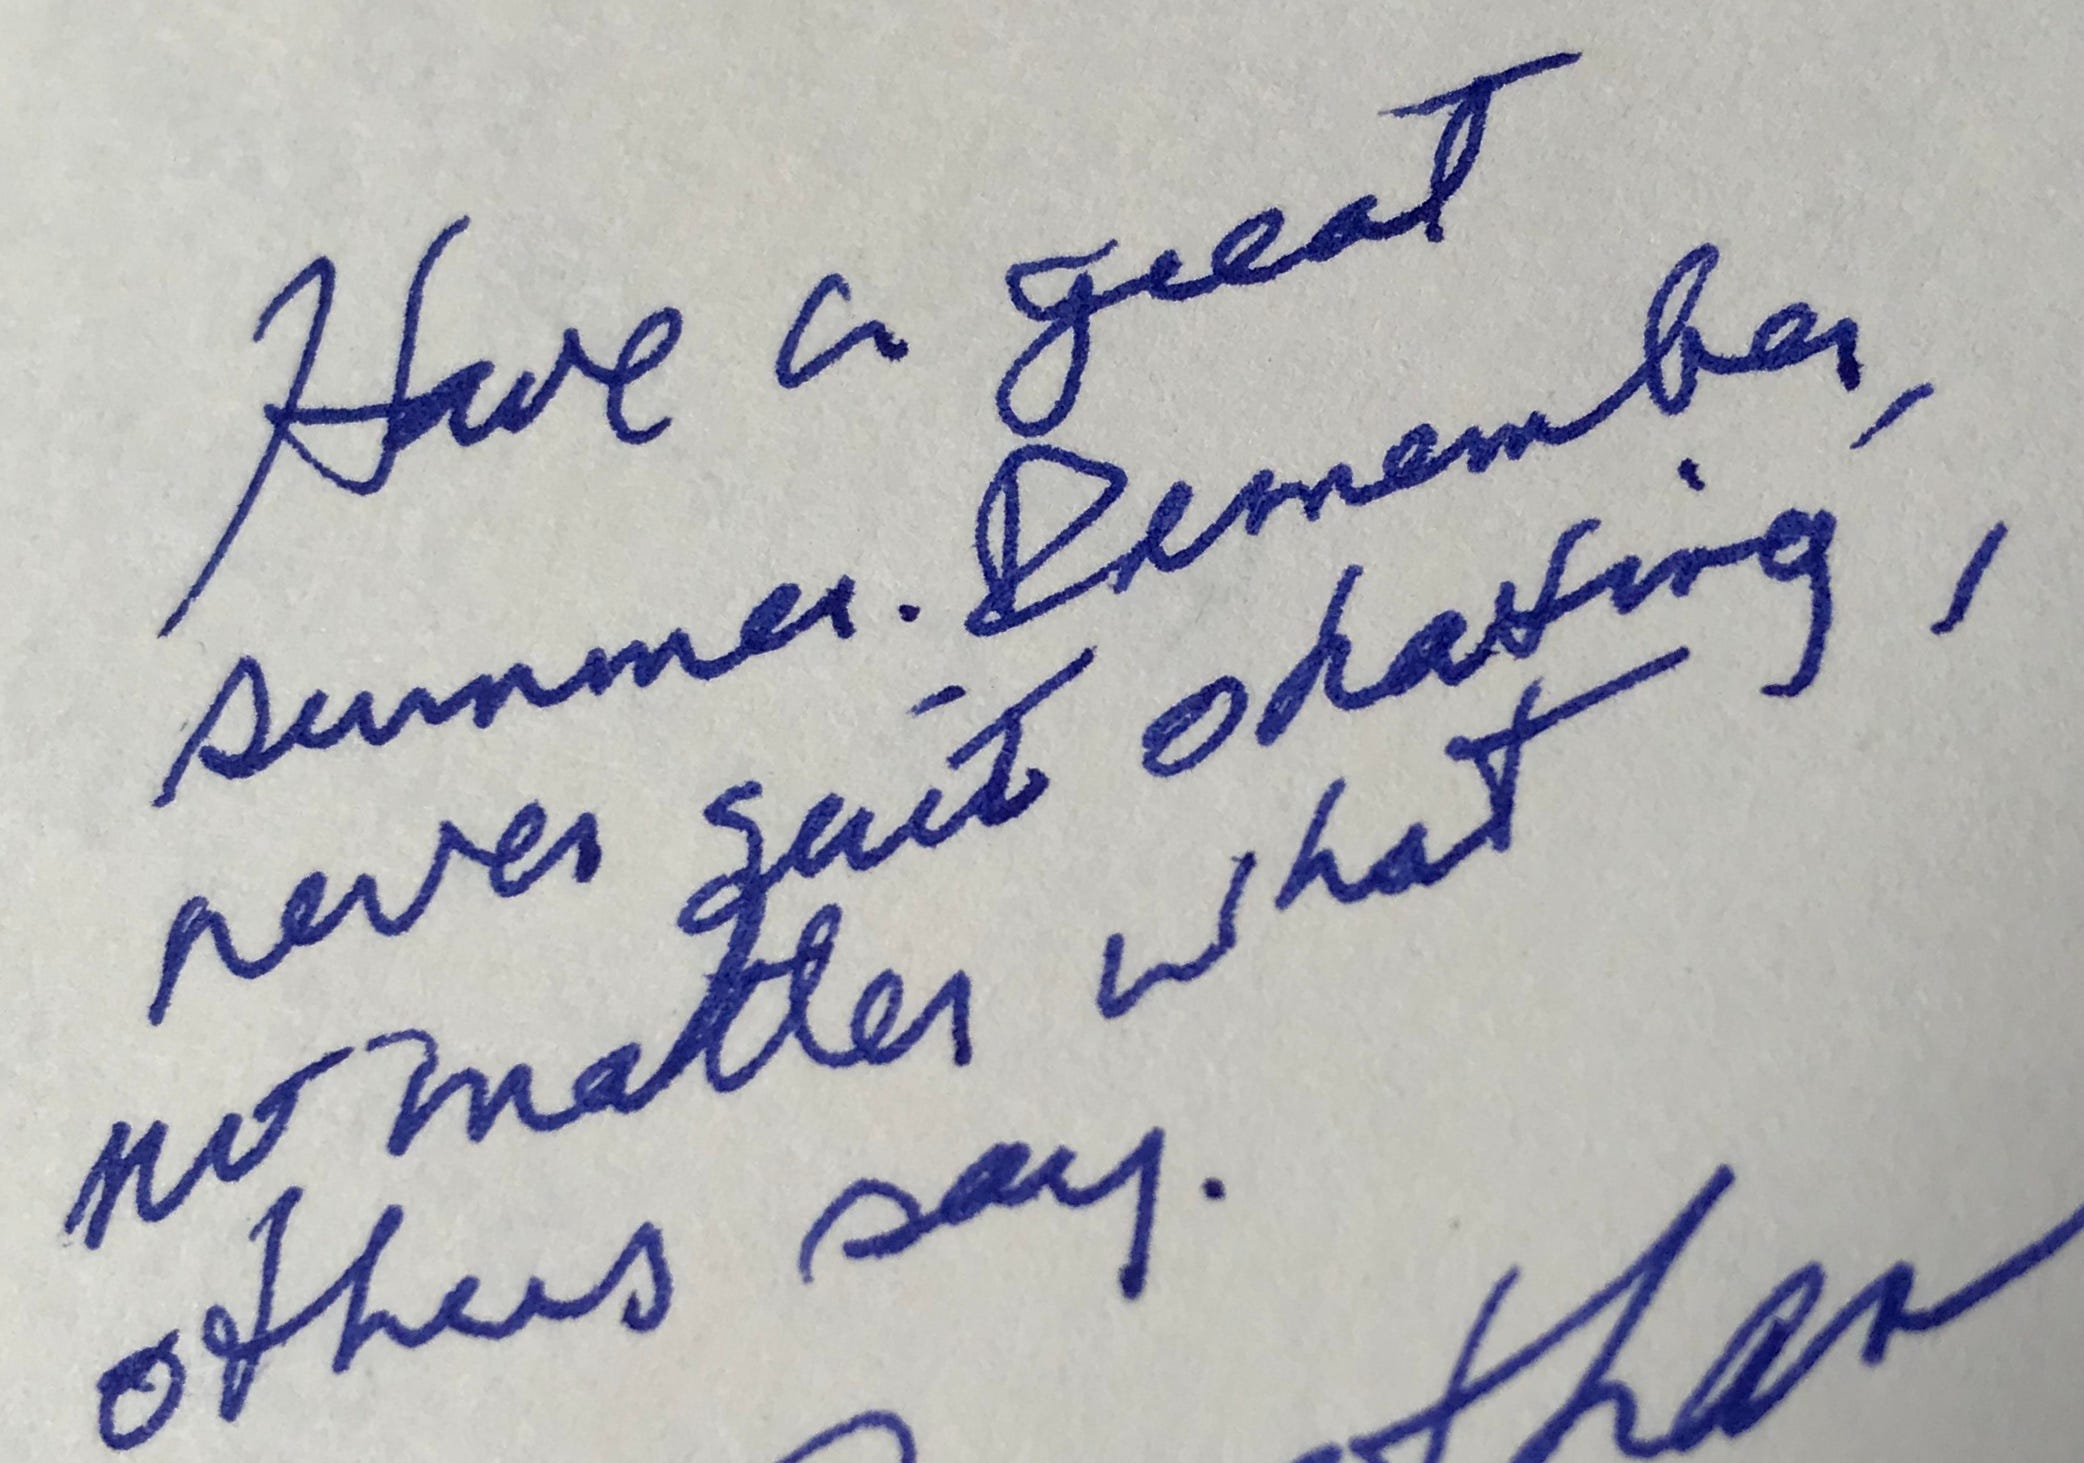 Have a great
summer. Remember,
never quit shaving,
no matter what
others say.